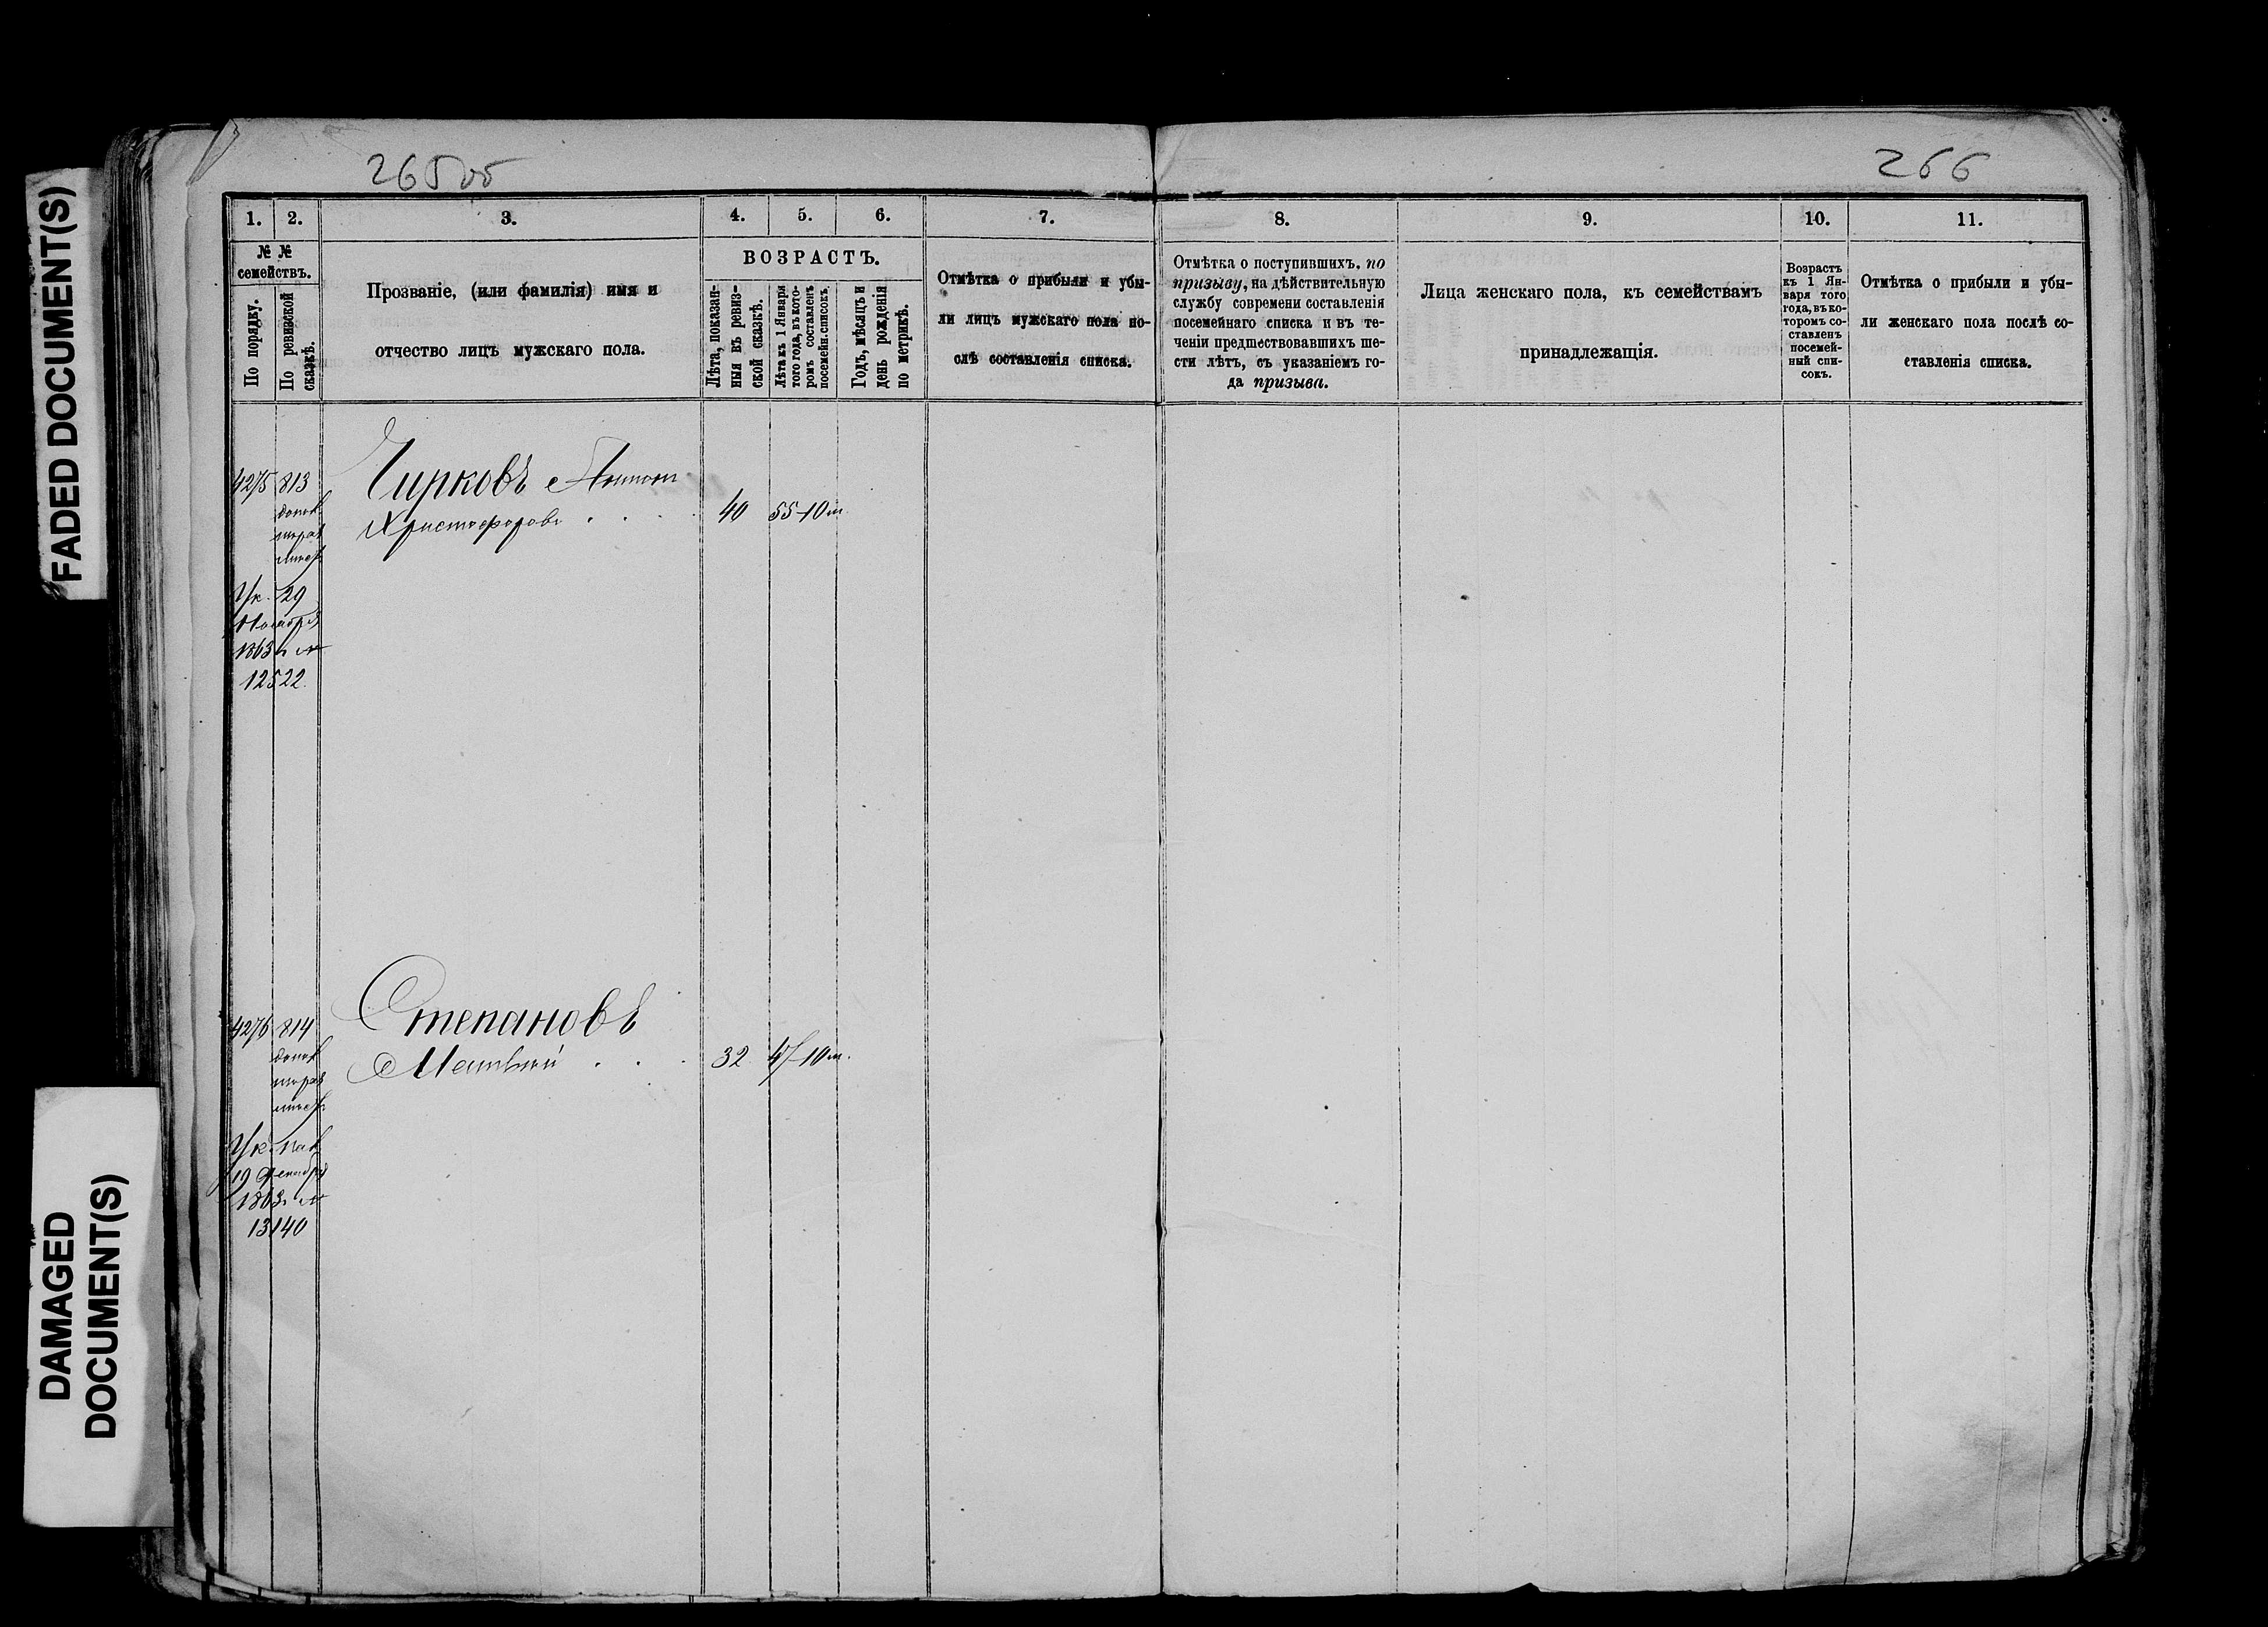 FADED DOCUMENT(S)
DAMAGED
DOCUMENT(S)
265об
266
1.
2.
3.
4.
5.
6.
7.
8.
9.
10.
11.
№ №
семействъ.
По порядку.
По ревизской
сказкѣ.
Прозваніе, (или фамилія) имя и
отчество лицъ мужскаго пола.
ВОЗРАСТЪ.
Лѣта, показан-
ныя въ ревиз-
ской сказкѣ.
Лѣта къ 1 Января
того года, въ кото-
ромъ составленъ
посемейн. списокъ.
Годъ, мѣсяцъ и
день рожденія
по метрикѣ.
Отмѣтка о прибыли и убы-
ли лицъ мужскаго пола по-
слѣ составленія списка.
Отмѣтка о поступившихъ, по
призыву, на дѣйствительную
службу современи составленія
посемейнаго списка и въ те-
ченіи предшествовавшихъ ше-
сти лѣтъ, съ указаніемъ го-
да призыва.
Лица женскаго пола, къ семействамъ
принадлежащія.
Возрастъ
къ 1 Ян-
варя того
года, въ ко-
торомъ со-
ставленъ
посемей-
ный спи-
сокъ.
Отмѣтка о прибыли и убы-
ли женскаго пола послѣ со-
ставленія списка.
4275 813
Чирковъ Антон
Христофоровъ
40 55-10 м
Ук. 29
Ноября
1863 г. №
12522.
4276 814
Степановъ
Матвѣй
32 47-10 м.
19 Декабря
1863 г. №
13140